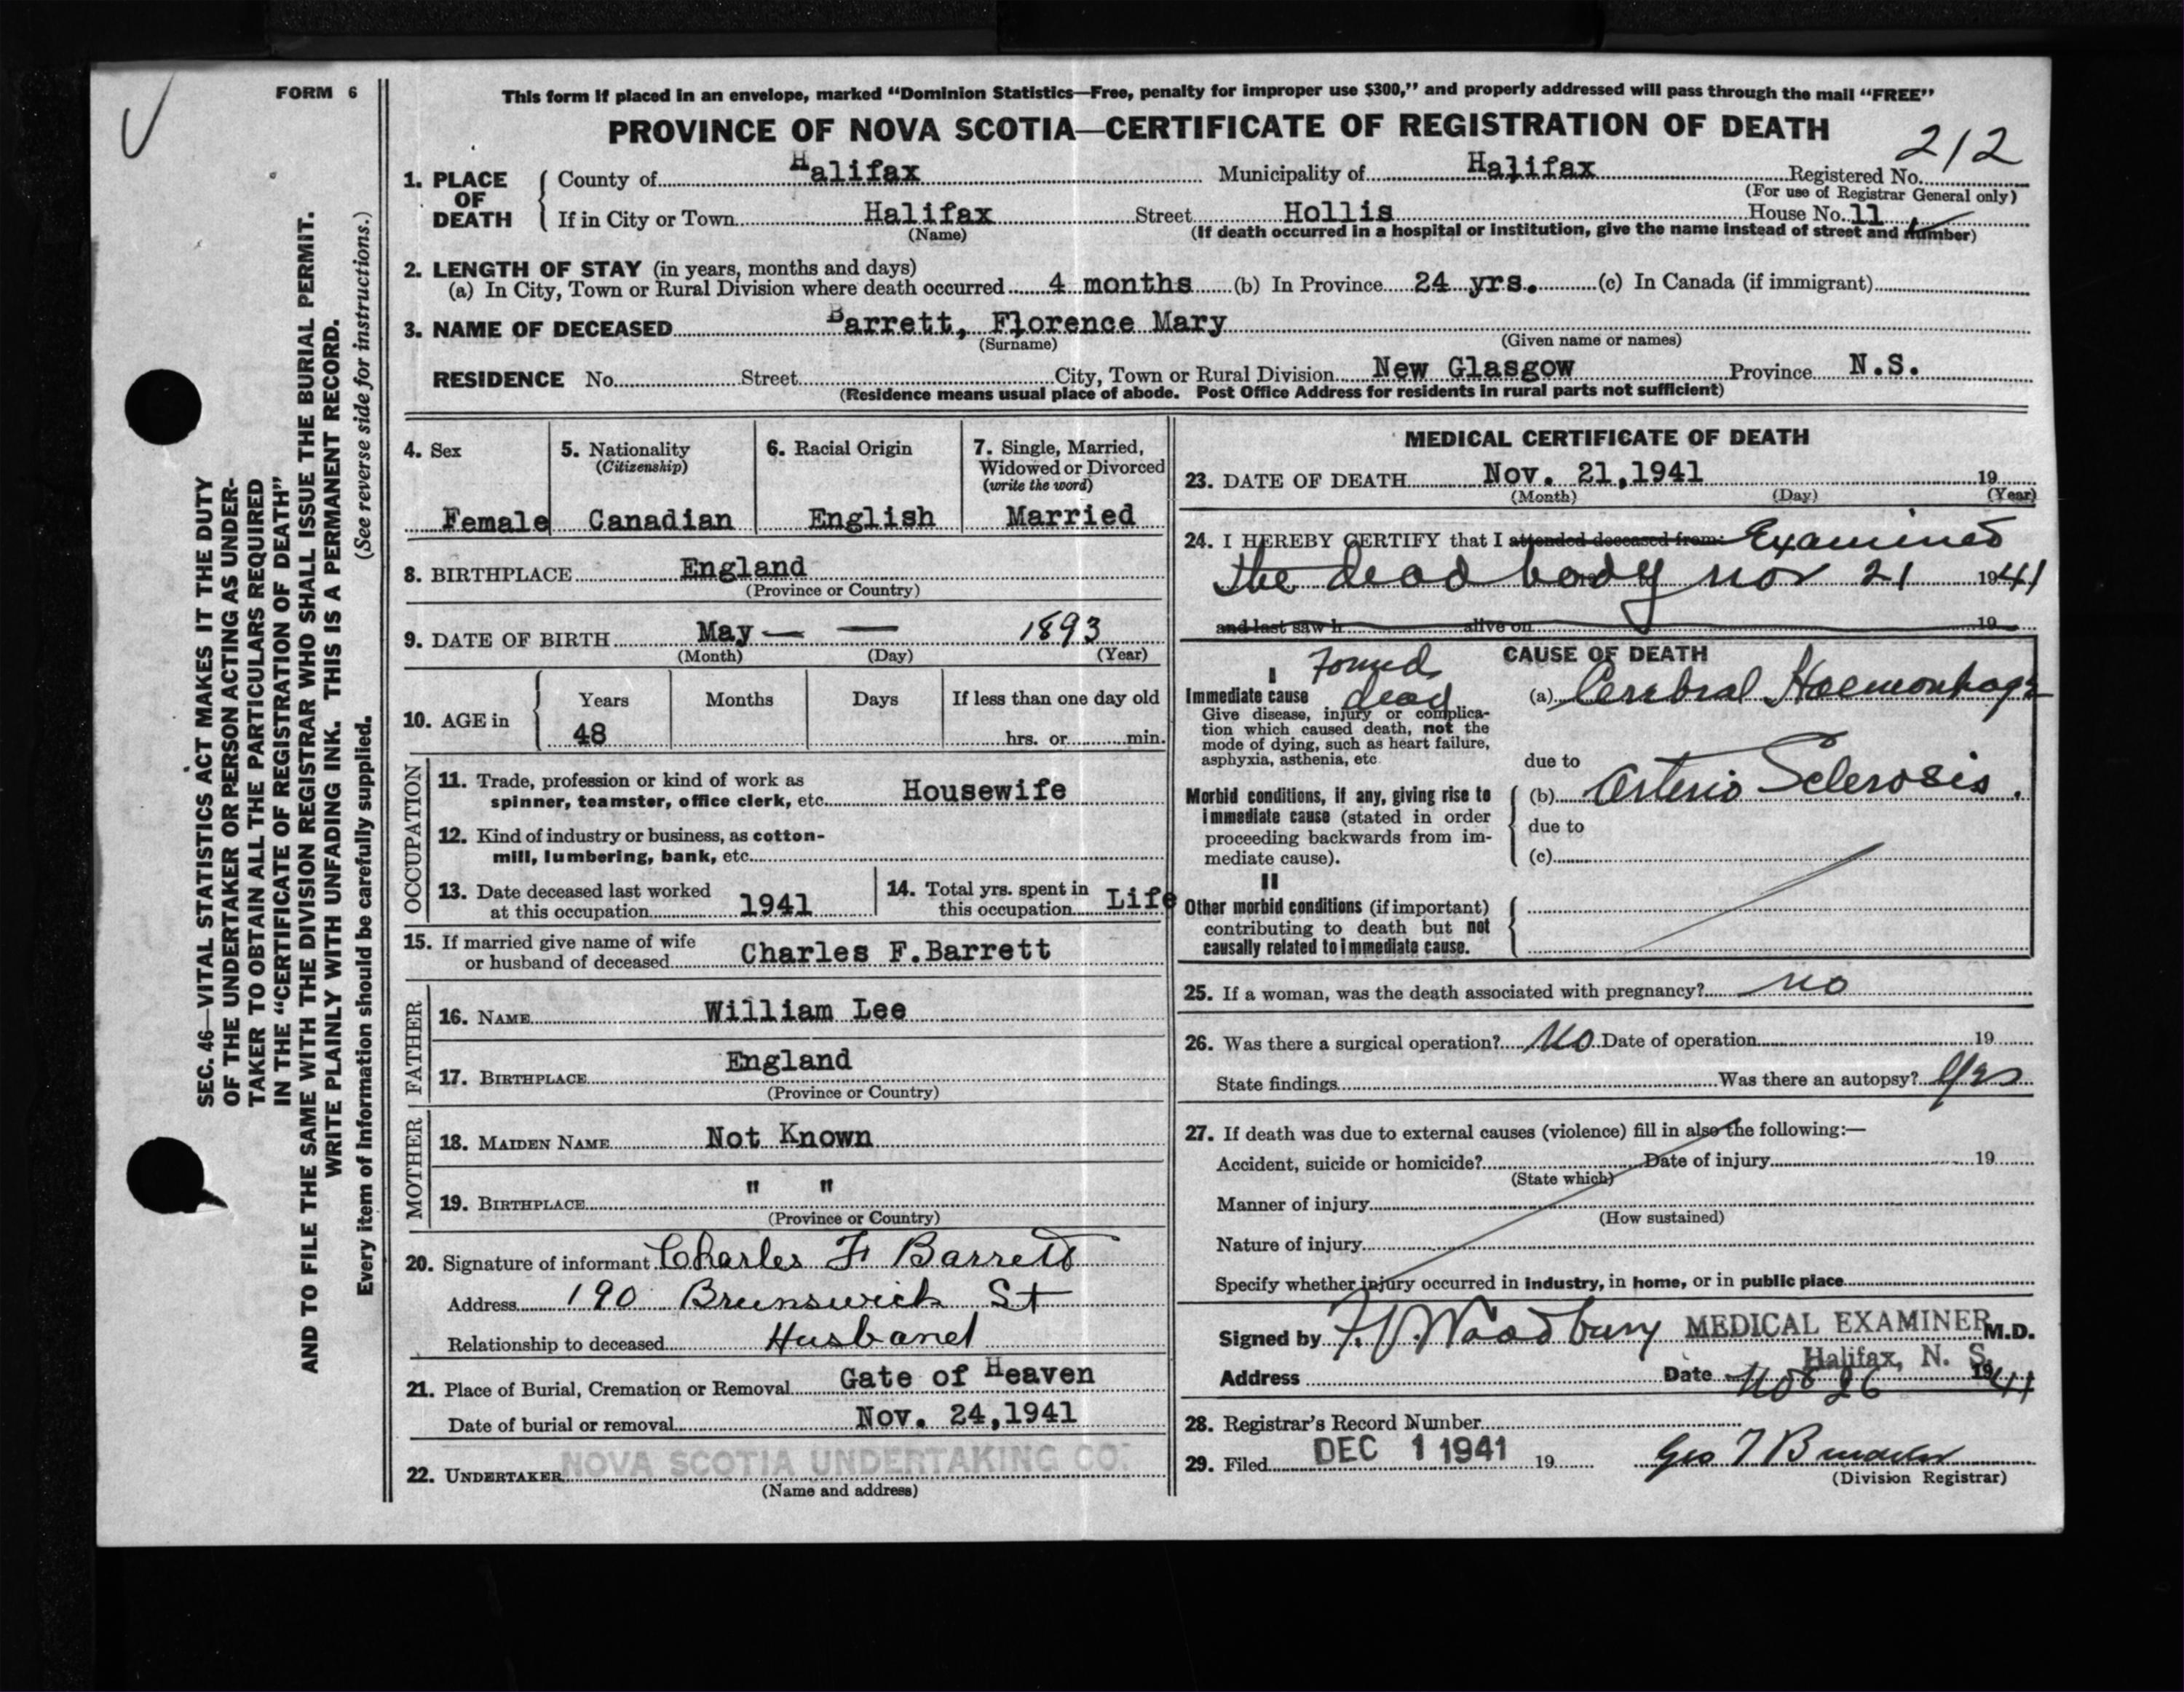 FORM 6
This form if placed in an envelope, marked “Dominion Statistics—Free, penalty for improper use $300,” and properly addressed will pass through the mail “FREE”
PROVINCE OF NOVA SCOTIA—CERTIFICATE OF REGISTRATION OF DEATH
212
1. PLACE OF DEATH
County of Halifax Municipality of Halifax Registered No.
(For use of Registrar General only)
If in City or Town Halifax Street Hollis House No. 11
(Name) (If death occurred in a hospital or institution, give the name instead of street and number)
2. LENGTH OF STAY (in years, months and days)
(a) In City, Town or Rural Division where death occurred 4 months (b) In Province 24 yrs. (c) In Canada (if immigrant)
3. NAME OF DECEASED Barrett, Florence Mary
(Surname) (Given name or names)
RESIDENCE No. Street City, Town or Rural Division New Glasgow Province N.S.
(Residence means usual place of abode. Post Office Address for residents in rural parts not sufficient)
4. Sex
Female
5. Nationality
(Citizenship)
Canadian
6. Racial Origin
English
7. Single, Married,
Widowed or Divorced
(write the word)
Married
8. BIRTHPLACE England
(Province or Country)
9. DATE OF BIRTH May — — 1893
(Month) (Day) (Year)
10. AGE in
Years Months Days If less than one day old
48 hrs. or min.
OCCUPATION
11. Trade, profession or kind of work as
spinner, teamster, office clerk, etc. Housewife
12. Kind of industry or business, as cotton-
mill, lumbering, bank, etc.
13. Date deceased last worked
at this occupation 1941
14. Total yrs. spent in
this occupation Life
15. If married give name of wife
or husband of deceased Charles F.Barrett
FATHER
16. NAME William Lee
17. BIRTHPLACE England
(Province or Country)
MOTHER
18. MAIDEN NAME Not Known
19. BIRTHPLACE " "
(Province or Country)
20. Signature of informant Charles F Barrett
Address 190 Brunswick St
Relationship to deceased Husband
21. Place of Burial, Cremation or Removal Gate of Heaven
Date of burial or removal Nov. 24,1941
22. UNDERTAKER NOVA SCOTIA UNDERTAKING CO.
(Name and address)
MEDICAL CERTIFICATE OF DEATH
23. DATE OF DEATH Nov. 21,1941 19
(Month) (Day) (Year)
24. I HEREBY CERTIFY that I attended deceased from: Examined
the dead body Nov 21 1941
and last saw h alive on 19
CAUSE OF DEATH
I
Found
dead
Immediate cause
(a) Cerebral Haemorrhage
Give disease, injury or complica-
tion which caused death, not the
mode of dying, such as heart failure,
asphyxia, asthenia, etc.
due to
Morbid conditions, if any, giving rise to
immediate cause (stated in order
proceeding backwards from im-
mediate cause).
(b) Arterio Sclerosis.
due to
(c)
II
Other morbid conditions (if important)
contributing to death but not
causally related to immediate cause.
25. If a woman, was the death associated with pregnancy? no
26. Was there a surgical operation? No Date of operation 19
State findings Was there an autopsy? Yes
27. If death was due to external causes (violence) fill in also the following:—
Accident, suicide or homicide? Date of injury 19
(State which)
Manner of injury
(How sustained)
Nature of injury
Specify whether injury occurred in industry, in home, or in public place
Signed by Woodbury MEDICAL EXAMINER M.D.
Halifax, N. S.
Address Date Nov 26 1941
28. Registrar's Record Number
29. Filed DEC 1 1941 19 Geo
(Division Registrar)
SEC. 46—VITAL STATISTICS ACT MAKES IT THE DUTY
OF THE UNDERTAKER OR PERSON ACTING AS UNDER-
TAKER TO OBTAIN ALL THE PARTICULARS REQUIRED
IN THE “CERTIFICATE OF REGISTRATION OF DEATH”
AND TO FILE THE SAME WITH THE DIVISION REGISTRAR WHO SHALL ISSUE THE BURIAL PERMIT.
WRITE PLAINLY WITH UNFADING INK. THIS IS A PERMANENT RECORD.
Every item of information should be carefully supplied. (See reverse side for instructions.)